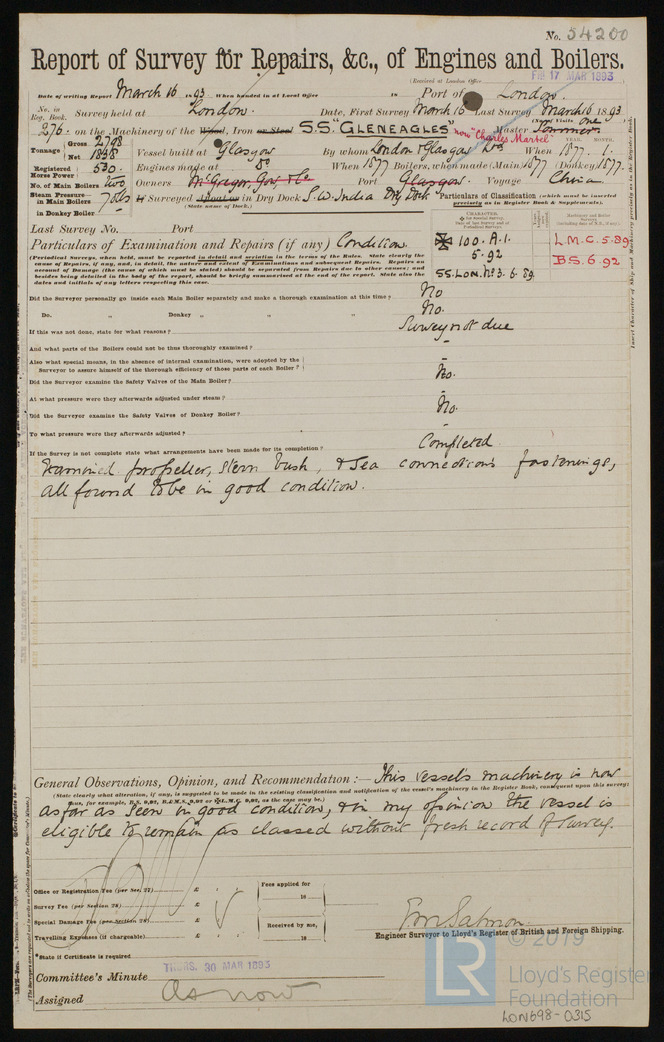 No. 54200
Report of Survey for Repairs, &c., of Engines and Boilers.
(Received at London Office
FRI 17 MAR 1893
Date of writing Report March 16 1893 When handed in at Local Office 18 Port of London.
No. in Reg. Book. Survey held at London. Date, First Survey March 16 Last Survey March 16 1893
(No. of Visits One)
276. on the Machinery of the Wood, Iron or Steel S.S. "GLENEAGLES" now "Charles Martel" Master
Tonnage Gross 2798 Net 1838
Vessel built at Glasgow By whom London & Glasgow When 1877. 1.
Registered Horse Power 530.
Engines made at Do When 1877 Boilers, when made (Main) 1877 (Donkey) 1877.
No. of Main Boilers
Owners McGregor, Gow, & Co Port Glasgow. Voyage China
Steam Pressure in Main Boilers
in Donkey Boiler
If Surveyed Afloat or in Dry Dock S.W. India Dry Dock
(State name of Dock.)
Particulars of Classification (which must be inserted precisely as in Register Book & Supplements).
Last Survey No. Port
Particulars of Examination and Repairs (if any) Condition.
(Periodical Surveys, when held, must be reported in detail and seriatim in the terms of the Rules. State clearly the
cause of Repairs, if any, and, in detail, the nature and extent of Examinations and subsequent Repairs. Repairs on
account of Damage (the cause of which must be stated) should be separated from Repairs due to other causes; and
besides being detailed in the body of the report, should be briefly summarised at the end of the report. State also the
dates and initials of any letters respecting this case.
100. A.1.
5.92
SS. LON. No 3. 6. 89.
L.M.C. 5.89
B.S. 6.92
Did the Surveyor personally go inside each Main Boiler separately and make a thorough examination at this time? No
Do. " Donkey " " " No.
If this was not done, state for what reasons? Survey not due
And what parts of the Boilers could not be thus thoroughly examined? -
Also what special means, in the absence of internal examination, were adopted by the
Surveyor to assure himself of the thorough efficiency of those parts of each Boiler? -
Did the Surveyor examine the Safety Valves of the Main Boiler? No.
At what pressure were they afterwards adjusted under steam? -
Did the Surveyor examine the Safety Valves of Donkey Boiler? No.
To what pressure were they afterwards adjusted? -
If the Survey is not complete state what arrangements have been made for its completion? Completed.
Examined propeller, stern bush, & sea connections fastenings,
all found to be in good condition.
General Observations, Opinion, and Recommendation:— This vessel's machinery is now
(State clearly what alteration, if any, is suggested to be made in the existing classification and notification of the vessel's machinery in the Register Book, consequent upon this survey;
thus, for example, B.S. 9,92, B.&M.S. 9,92 or L.M.C. 9,92, as the case may be.)
as far as seen in good condition, & in my opinion the vessel is
eligible to remain as classed without fresh record of survey.
Office or Registration Fee (per Sec. 27) £
Fees applied for
18
Survey Fee (per Section 28) £
Special Damage Fee (per Section 28) £
Received by me,
18
Travelling Expenses (if chargeable) £
*State if Certificate is required
Engineer Surveyor to Lloyd's Register of British and Foreign Shipping.
Committee's Minute THURS. 30 MAR 1893
Assigned As now
LR © 2019
Lloyd's Register
Foundation
LON698-0315